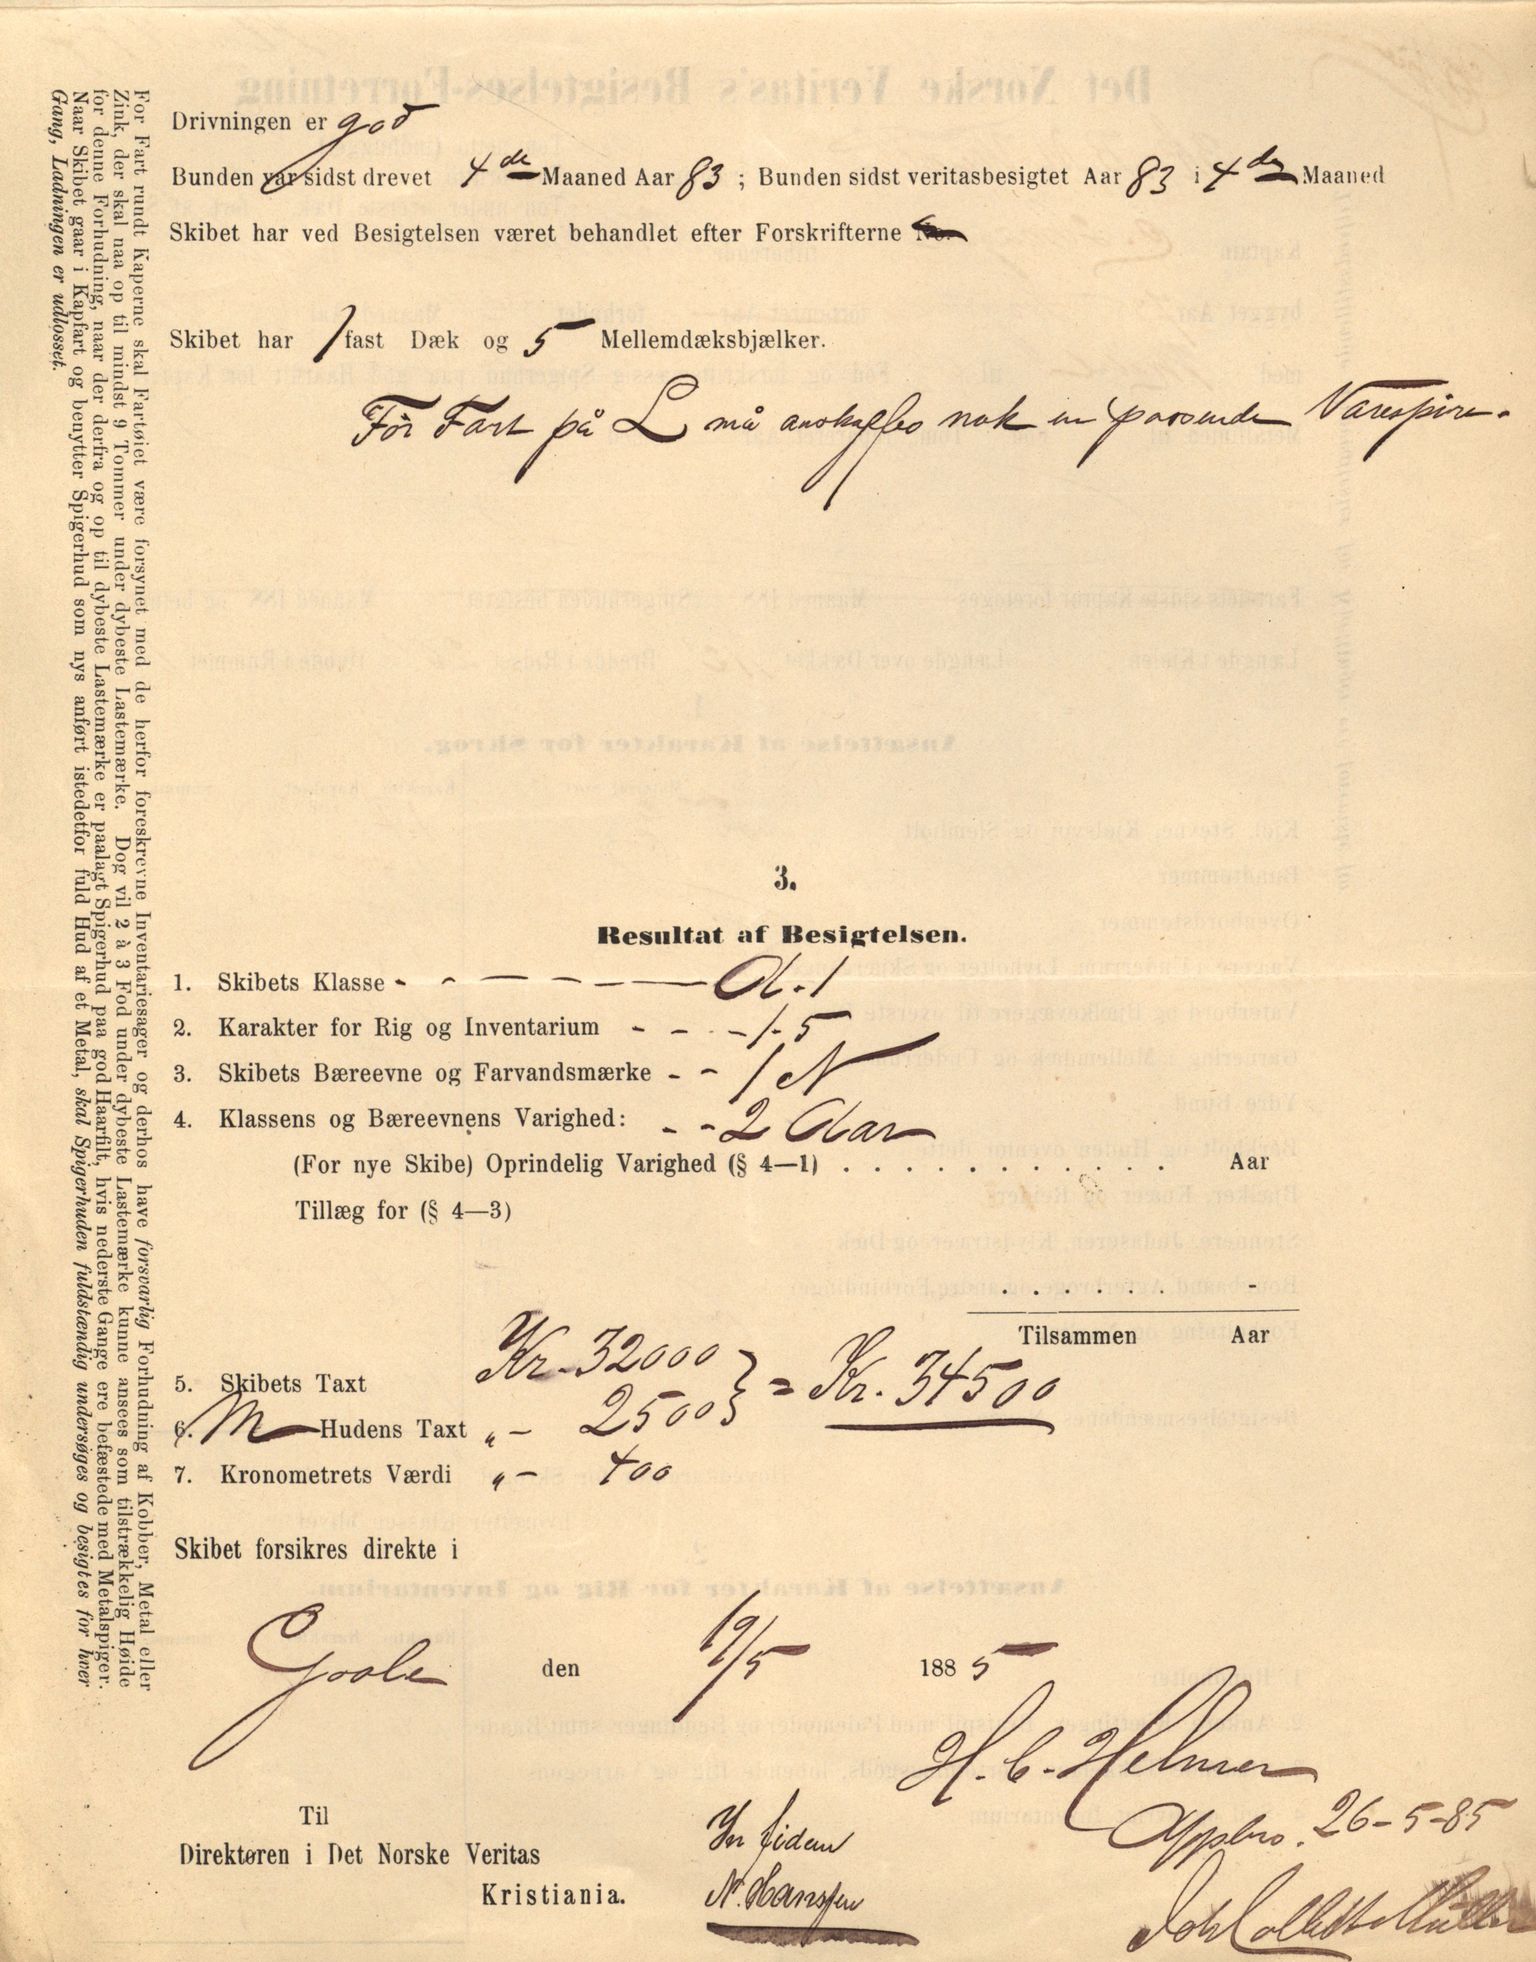 Drivningen er god
Bunden var sidst drevet 4de Maaned Aar 83 ; Bunden sidst veritasbesigtet Aar 83 i 4de Maaned
Skibet har ved Besigtelsen været behandlet efter Forskrifterne No.
Skibet har 1 fast Dæk og 5 Mellemdæksbjælker.
För Fart på L må anskaffes nok en passende Varespire.
3.
Resultat af Besigtelsen.
1. Skibets Klasse - - - - - - A.1
2. Karakter for Rig og Inventarium - - - 1.5
3. Skibets Bæreevne og Farvandsmærke - - 1 N
4. Klassens og Bæreevnens Varighed: - - 2 Aar
(For nye Skibe) Oprindelig Varighed (§ 4—1) . . . . . . . . . . . . Aar
Tillæg for (§ 4—3)
. . . . . . . -
Tilsammen Aar
5. Skibets Taxt Kr. 32000 } = Kr. 34500
6. M Hudens Taxt „ - 2500
7. Kronometrets Værdi „ - 400
Skibet forsikres direkte i
Goole den 19/5 1885
H. C. Helmer
Til
Direktøren i Det Norske Veritas
Kristiania.
In fidem
N. Hanssen
Appbro. 26-5-85
Joh Collett Müller
For Fart rundt Kaperne skal Fartøiet være forsynet med de herfor foreskrevne Inventariesager og derhos have forsvarlig Forhudning af Kobber, Metal eller
Zink, der skal naa op til mindst 9 Tommer under dybeste Lastemærke. Dog vil 2 à 3 Fod under dybeste Lastemærke kunne ansees som tilstrækkelig Høide
for denne Forhudning, naar der derfra og op til dybeste Lastemærke er paalagt Spigerhud paa god Haarfilt, hvis nederste Gange ere befæstede med Metalspiger.
Naar Skibet gaar i Kapfart og benytter Spigerhud som nys anført istedetfor fuld Hud af et Metal, skal Spigerhuden fuldstændig undersøges og besigtes for hver
Gang, Ladningen er udlosset.